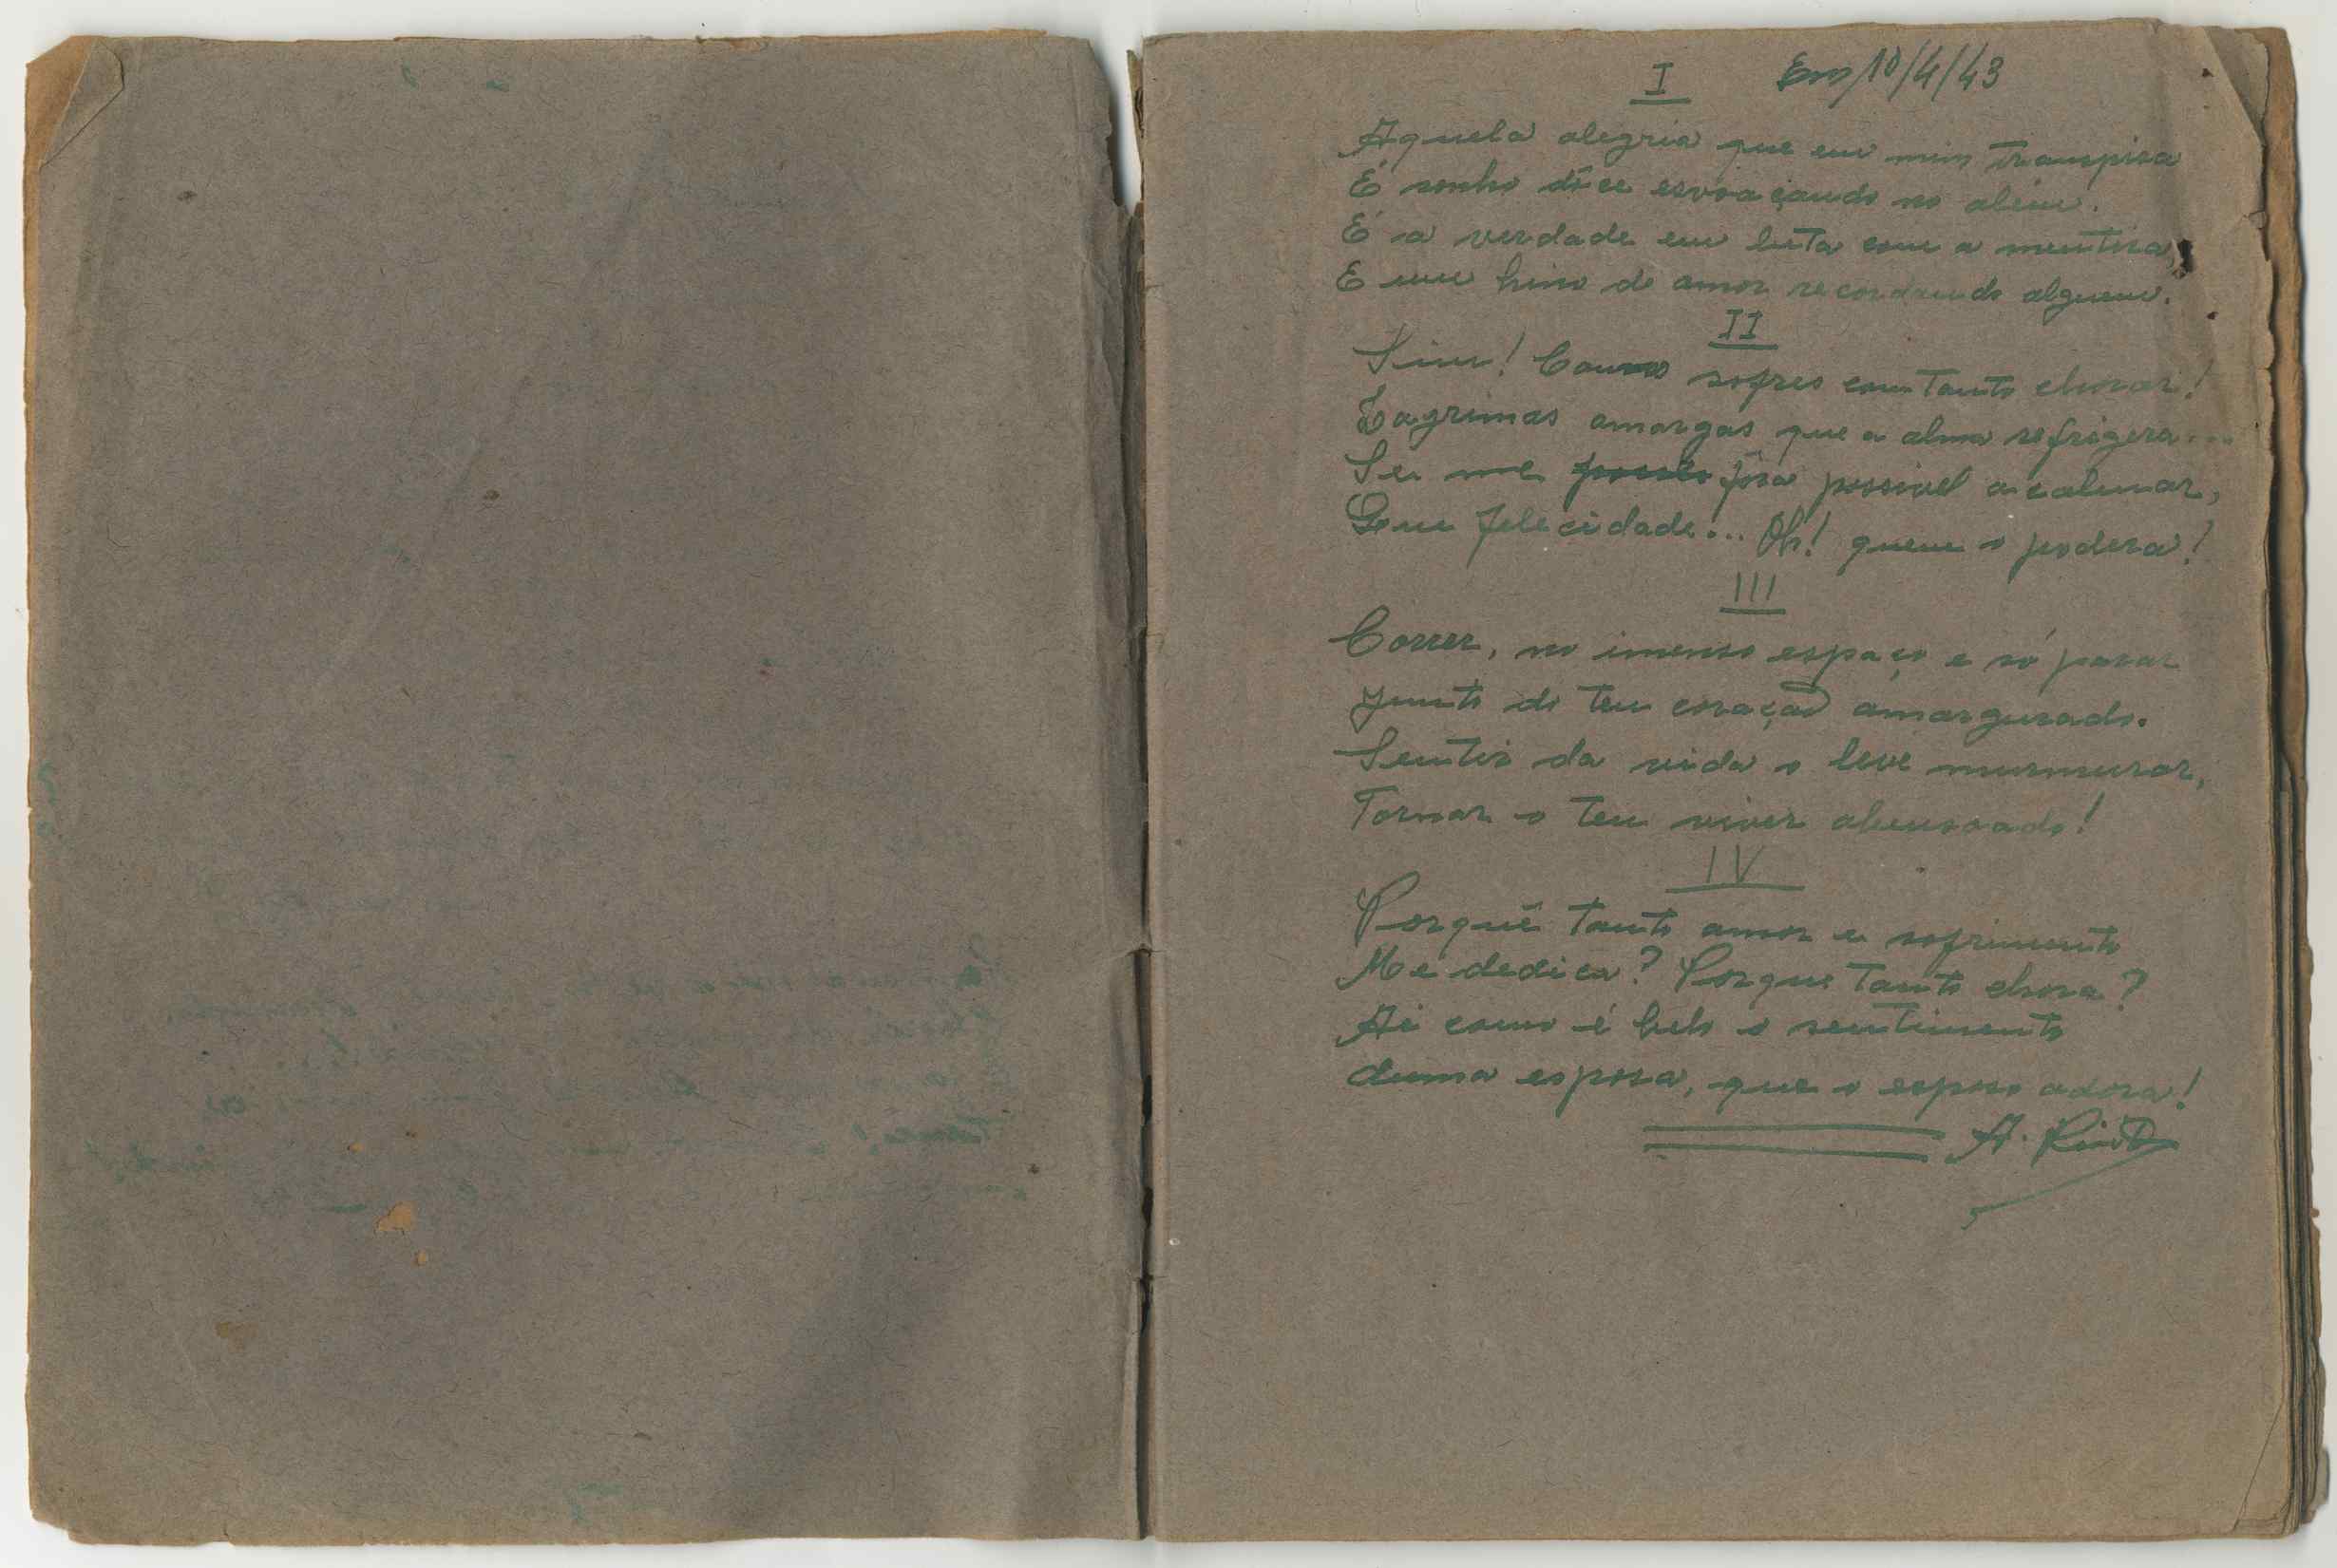 I Em, 10/4/43
Aquela alegria que em mim transpira
É sonho dôce esvoaçando no além.
É a verdade em luta com a mentira,
E um hino de amor recordando alguem.
II
Sim! Como sofres com tanto chorar!
Lagrimas amargas que a alma refrigera...
Se me fôra possivel acalmar,
Que felecidade... Oh! quem o podera!
III
Correr, no imenso espaço e só parar
Junto do teu coração amargurado.
Sentir da vida o leve murmurar,
Tornar o teu viver abensoado!
IV
Porquê tanto amor e sofrimento
Me dedica? Porque tanto chora?
Ai como é belo o sentimento
duma esposa, que o esposo adora!
A. Pinto